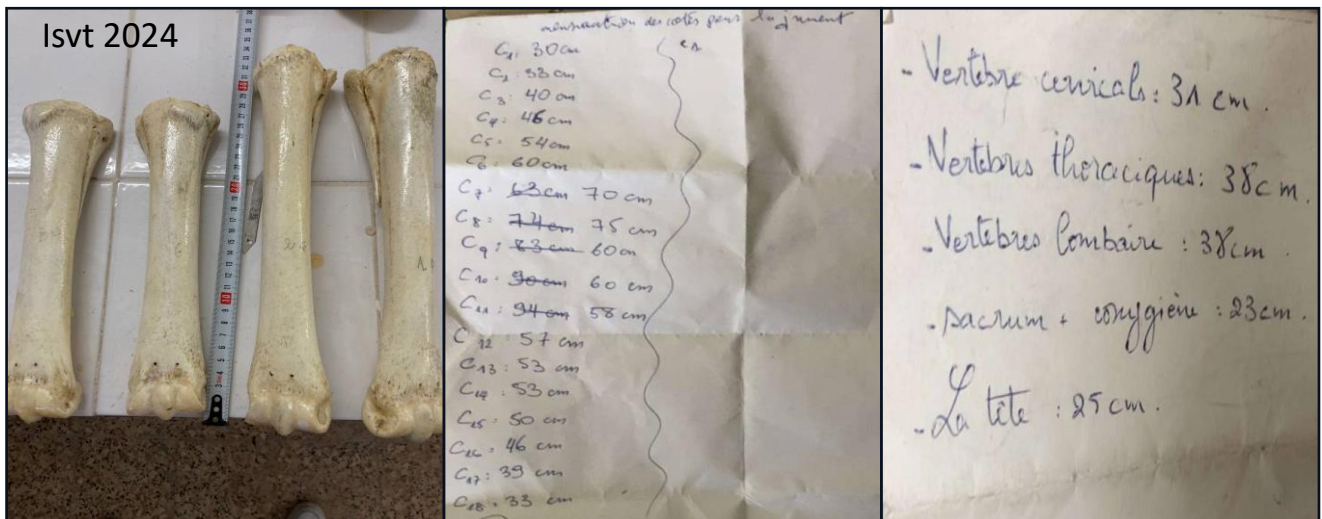 Isvt 2024
mensuration des cotés pour la jument
C1: 30cm
C2: 33 cm
C3: 40 cm
C4: 46cm
C5: 54cm
C6: 60cm
C7: 63cm 70 cm
C8: 74cm 75 cm
C9: 83cm 60cm
C10: 90cm 60 cm
C11: 94cm 58 cm
C12: 57 cm
C13: 53 cm
C14: 53 cm
C15: 50 cm
C16: 46 cm
C17: 39 cm
C18: 33 cm
- Vertèbre cervicals: 31 cm.
- Vertébres thoraciques: 38cm.
- Vertébres lombaire: 38cm.
- sacrum + coxygiène: 23cm.
- La tête: 25cm.